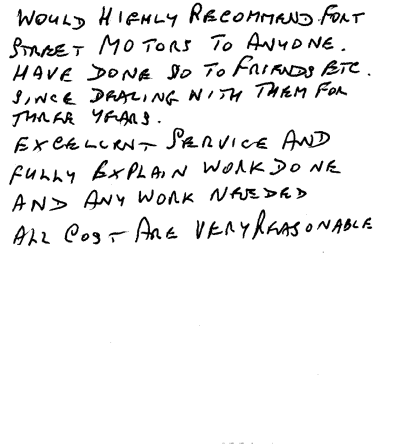 WOULD HIGHLY RECOMMEND FORT
STREET MOTORS TO ANYONE.
HAVE DONE SO TO FRIENDS ETC.
SINCE DEALING WITH THEM FOR
THREE YEARS.
EXCELLENT SERVICE AND
FULLY EXPLAIN WORK DONE
AND ANY WORK NEEDED
ALL COST ARE VERY REASONABLE